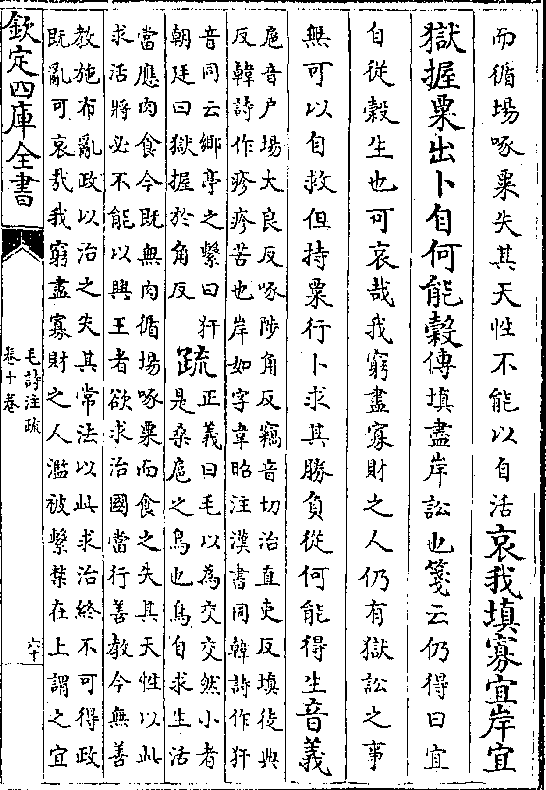 而循場啄粟失其天性不能以自活哀我填寡宜岸宜
獄握粟出卜自何能穀傳填盡岸訟也箋云仍得曰宜
自從穀生也可哀哉我窮盡寡財之人仍有獄訟之事
無可以自救但持粟行卜求其勝負從何能得生音義
扈音户場大良反啄陟角反竊音切治直吏反填徒典
反韓詩作疹疹苦也岸如字韋昭注漢書同韓詩作犴
音同云鄉亭之繫曰犴
朝廷曰獄握於角反
疏
正義曰毛以為交交然小者
是桑扈之鳥也鳥自求生活
當應肉食今既無肉循場啄粟而食之失其天性以此
求活將必不能以興王者欲求治國當行善教今無善
教施布亂政以治之失其常法以此求治終不可得政
既亂可哀哉我窮盡寡財之人濫被繫禁在上謂之宜
欽定四庫全書
毛詩注疏
卷十卷
六十